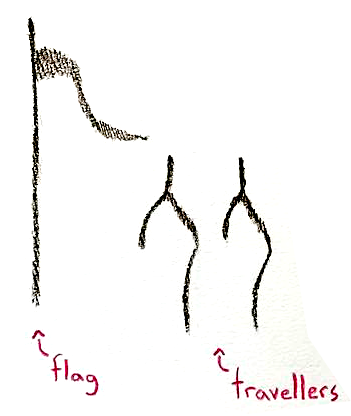 flag
travellers